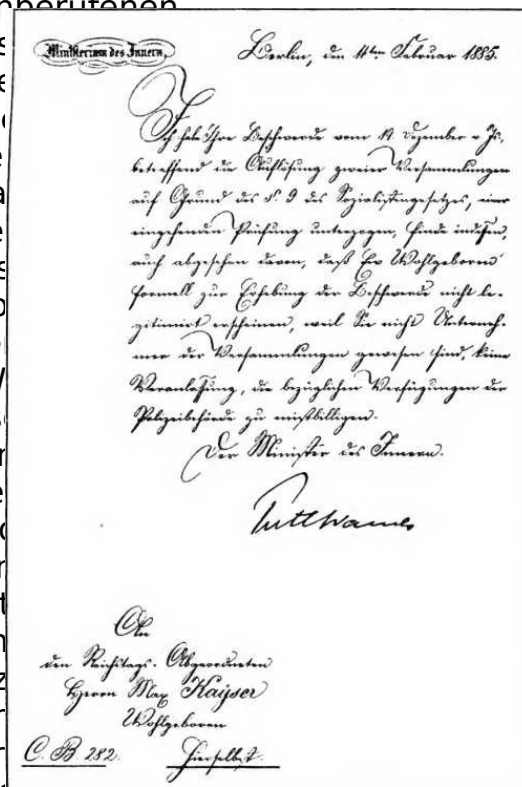 nberufenen
Ministerium des Innern.
Berlin, den 11ten Februar 1885.
Ich habe Ihre Beschwerde vom 17. Dezember v. Js.,
betreffend die Auflösung zweier Versammlungen
auf Grund des §. 9 des Sozialistengesetzes, einer
eingehenden Prüfung unterzogen, finde indessen,
auch abgesehen davon, daß Ew Wohlgeboren
formell zur Erhebung der Beschwerde nicht le-
gitimirt erscheinen, weil Sie nicht Unterneh-
mer der Versammlungen gewesen sind, keine
Veranlassung, die bezüglichen Verfügungen der
Polizeibehörde zu mißbilligen.
Der Minister des Innern.
Puttkamer
An
den Reichstags-Abgeordneten
Herrn Max Kayser
Wohlgeboren
C. B. 282. Hierselbst.